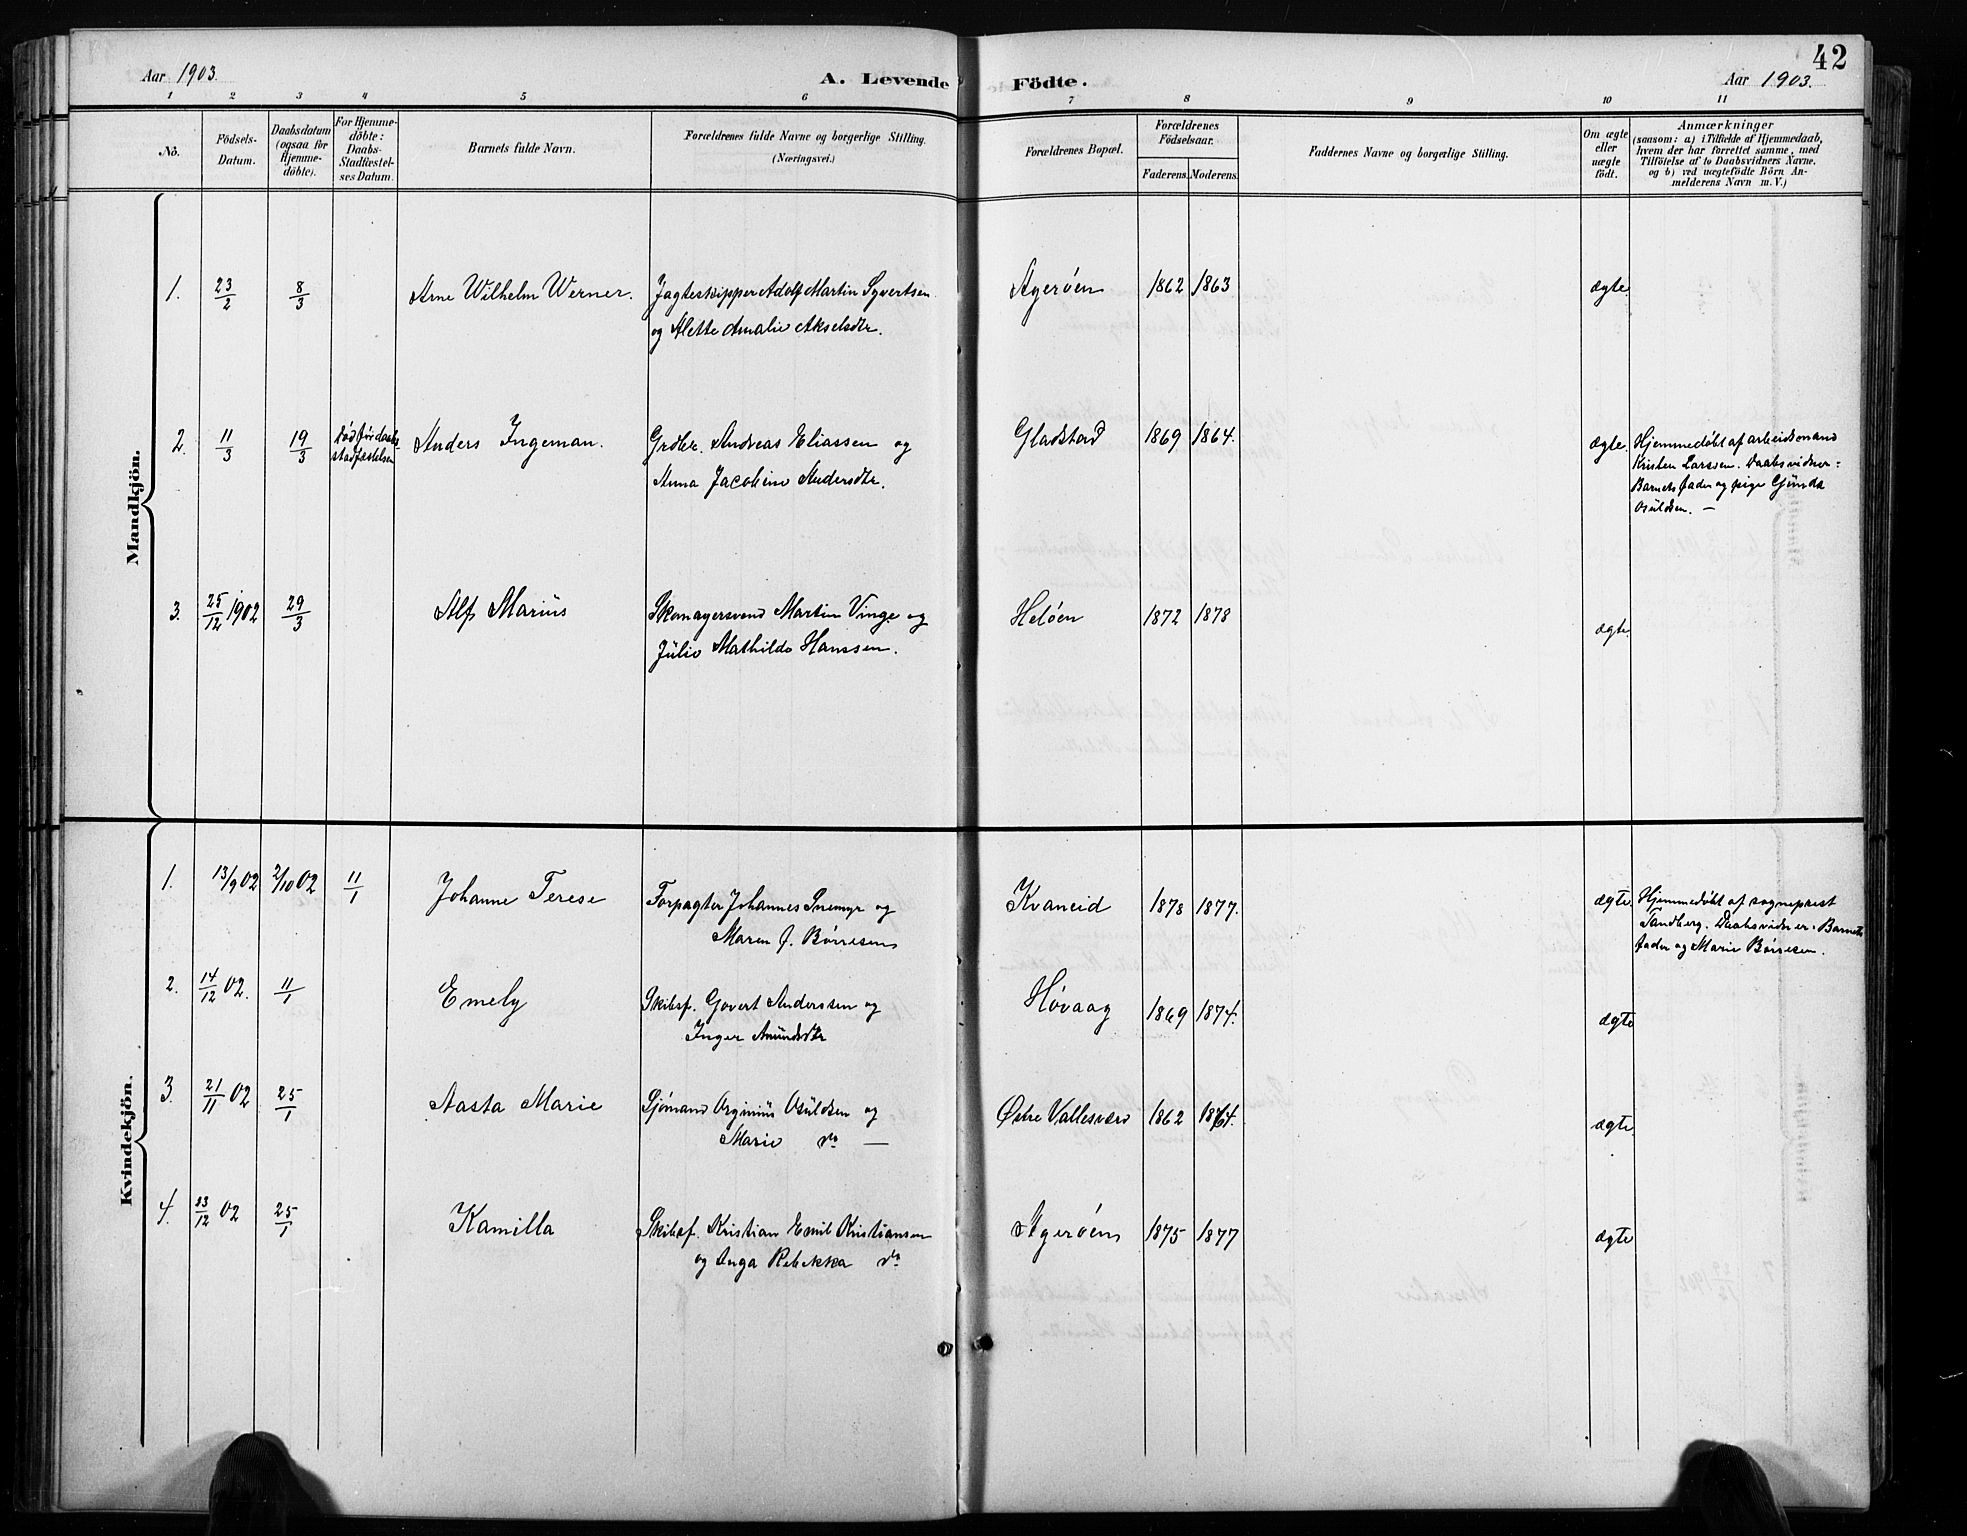 42
Aar 1903.
A. Levende Födte.
Aar 1903.
1 2 3 4 5 6 7 8 9 10 11
No.
Födsels-
Datum.
Daabsdatum
(ogsaa for
Hjemme-
döbte).
For Hjemme-
döbte:
Daabs-
Stadfæstel-
ses Datum.
Barnets fulde Navn.
Forældrenes fulde Navne og borgerlige Stilling.
(Næringsvei.)
Forældrenes Bopæl.
Forældrenes
Födselsaar.
Faderens. Moderens.
Faddernes Navne og borgerlige Stilling.
Om ægte
eller
uægte
födt.
Anmærkninger
(saasom: a) i Tilfælde af Hjemmedaab,
hvem der har forrettet samme, med
Tilföielse af to Daabsvidners Navne,
og b) ved uægtefödte Börn An-
melderens Navn m. V.)
Mandkjön.
1. 23/2 8/3 Arne Wilhelm Werner. Jagteskipper Adolf Martin Syvertsen Agerøen 1862 1863 ægte.
og Alette Amalie Akselsdtr.
2. 11/3 19/3 Død før daabs- Anders Ingeman. Grdbr. Andreas Eliassen og Gladstad 1869 1864. ægte. Hjemmedøbt af arbeidsmand
stadfæstelsen Anna Jacobine Andersdtr. Kristen Larssen. Daabsvidner:
Barnets fader og pige Gunda
Osuldsen. —
3. 25/12 1902 29/3 Alf Marius Skomagersvend Martin Vinge og Heløen 1872 1878 ægte
Julie Mathilde Hanssen.
Kvindekjön.
1. 13/9 02 2/10 02 11/1 Johanne Terese Forpagter Johannes Snemyr og Kvaneid 1878 1877. ægte Hjemmedøbt af sogneprest
Maren J. Børresen Tandberg. Daabsvidner: Barnets
fader og Marie Børresen.
2. 14/12 02. 11/1 Emely Skibsf. Govert Anderssen og Høvaag 1869 1874. ægte
Inger Amundsdtr
3. 21/11 02 25/1 Aasta Marie Sjømand Orginius Osuldsen og Østre Vallesværd 1862 ægte.
Marie do —
4. 23/12 02 25/1 Kamilla Skibsf. Kristian Emil Kristiansen Agerøen 1875 1877 ægte
og Inga Rebekka do